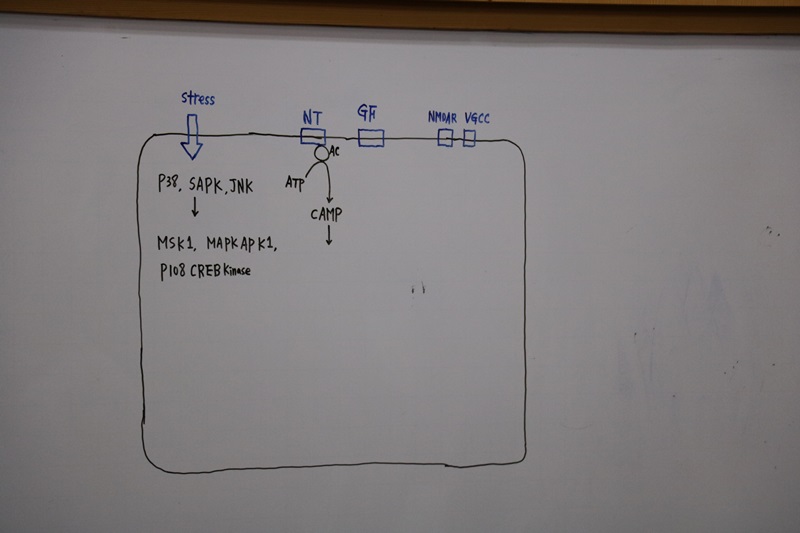 stress
NT
GF
NMDAR VGCC
AC
P38, SAPK, JNK
ATP
CAMP
MSK1, MAPKAPK1,
P108 CREB Kinase